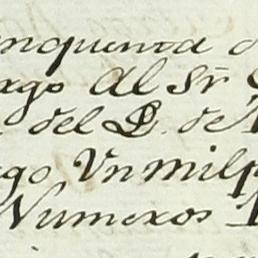 nquenta
rgo Al Sr
del D. de
go Vn mil
Numeros